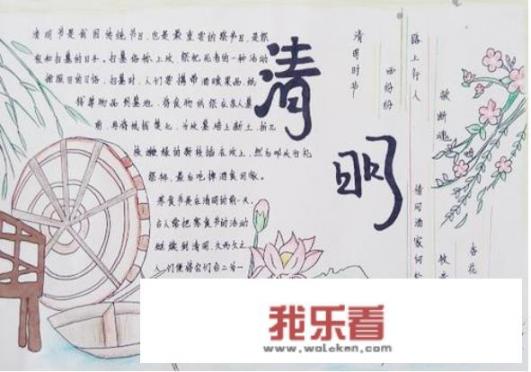 清明节是我国传统节日,也是最重要的祭节日,是祭
祖和扫墓的日子。扫墓俗称上坟,祭祀死者的一种活动
按照旧的习俗,扫墓时,人们要携带酒食果品,纸
钱等物品到墓地,将食物供祭在亲人墓
前,再将纸钱焚化,为坟墓培上新土,折几
枝嫩绿的新枝插在坟上,然后叩头行礼
祭拜,最后吃掉酒食回家。
寒食节是在清明的前一天,
古人常把寒食节的活动
延续到清明,久而久之
人们便将它们合二为一
清
明
清明时节
雨纷纷
路上行人
欲断魂
借问酒家何处
牧
杏花
我乐看
www.woleken.com